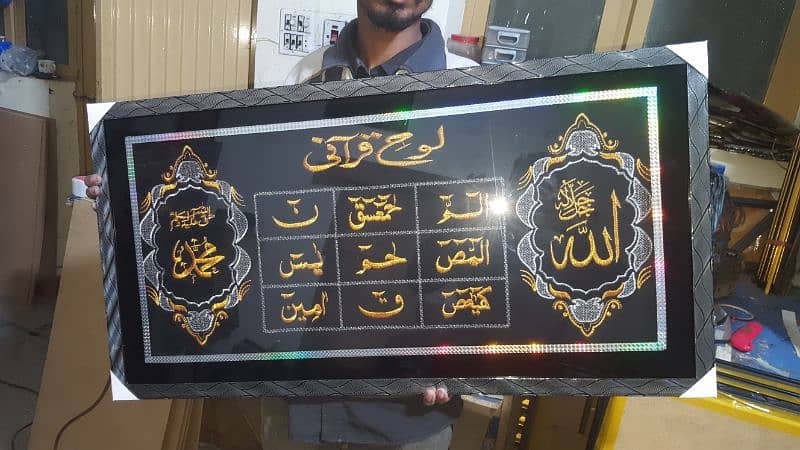 لوح قرآنی
الله
جل جلاله
الم حمعسق ن
المص حم یس
کھیعص ق آمین
صلی الله علیہ وسلم
محمد